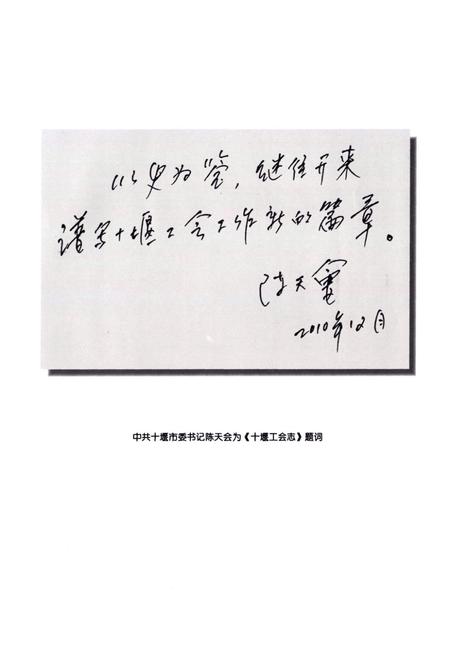 以史为鉴，继往开来
谱写十堰工会工作新的篇章。
陈天會
2010年12月
中共十堰市委书记陈天会为《十堰工会志》题词